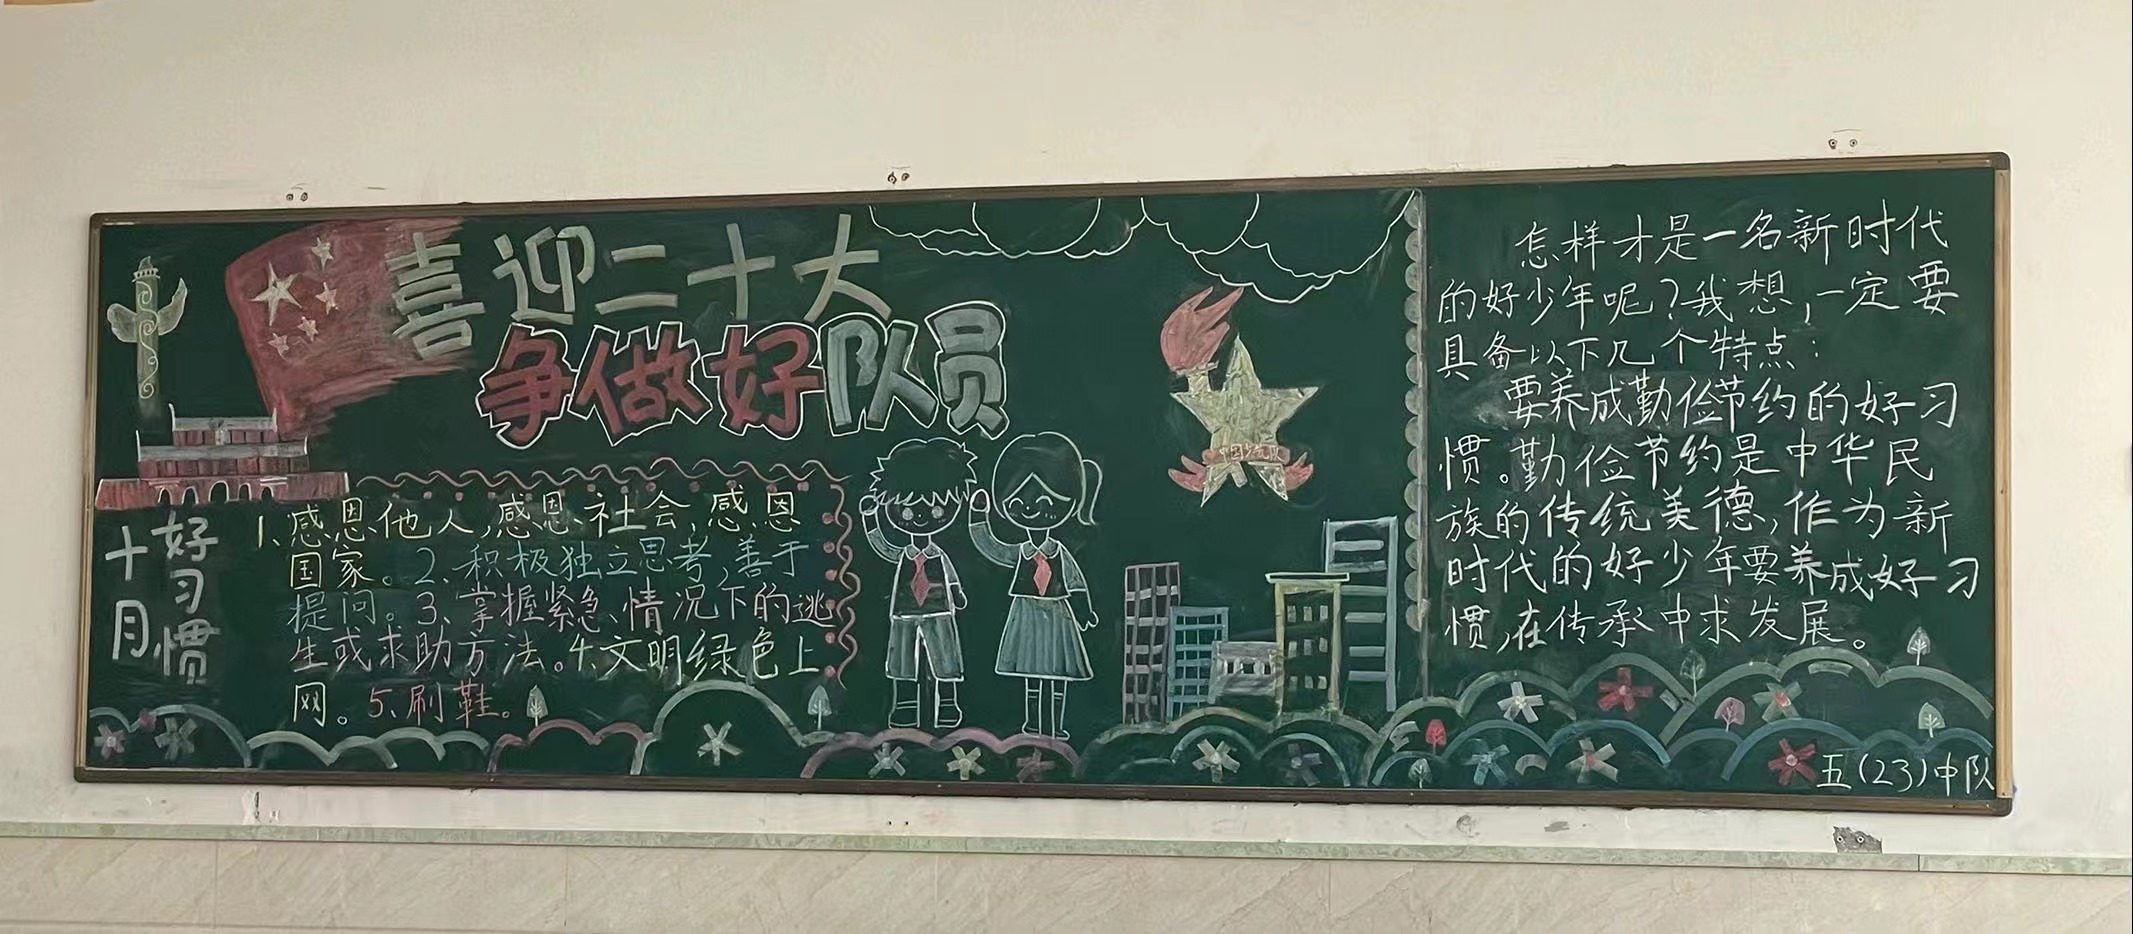 喜迎二十大
争做好队员
十月
好习惯
1、感恩他人,感恩社会,感恩
国家。2、积极独立思考,善于
提问。3、掌握紧急情况下的逃
生或求助方法。4、文明绿色上
网。5、刷鞋。
怎样才是一名新时代
的好少年呢?我想,一定要
具备以下几个特点:
要养成勤俭节约的好习
惯。勤俭节约是中华民
族的传统美德,作为新
时代的好少年要养成好习
惯,在传承中求发展。
五(23)中队